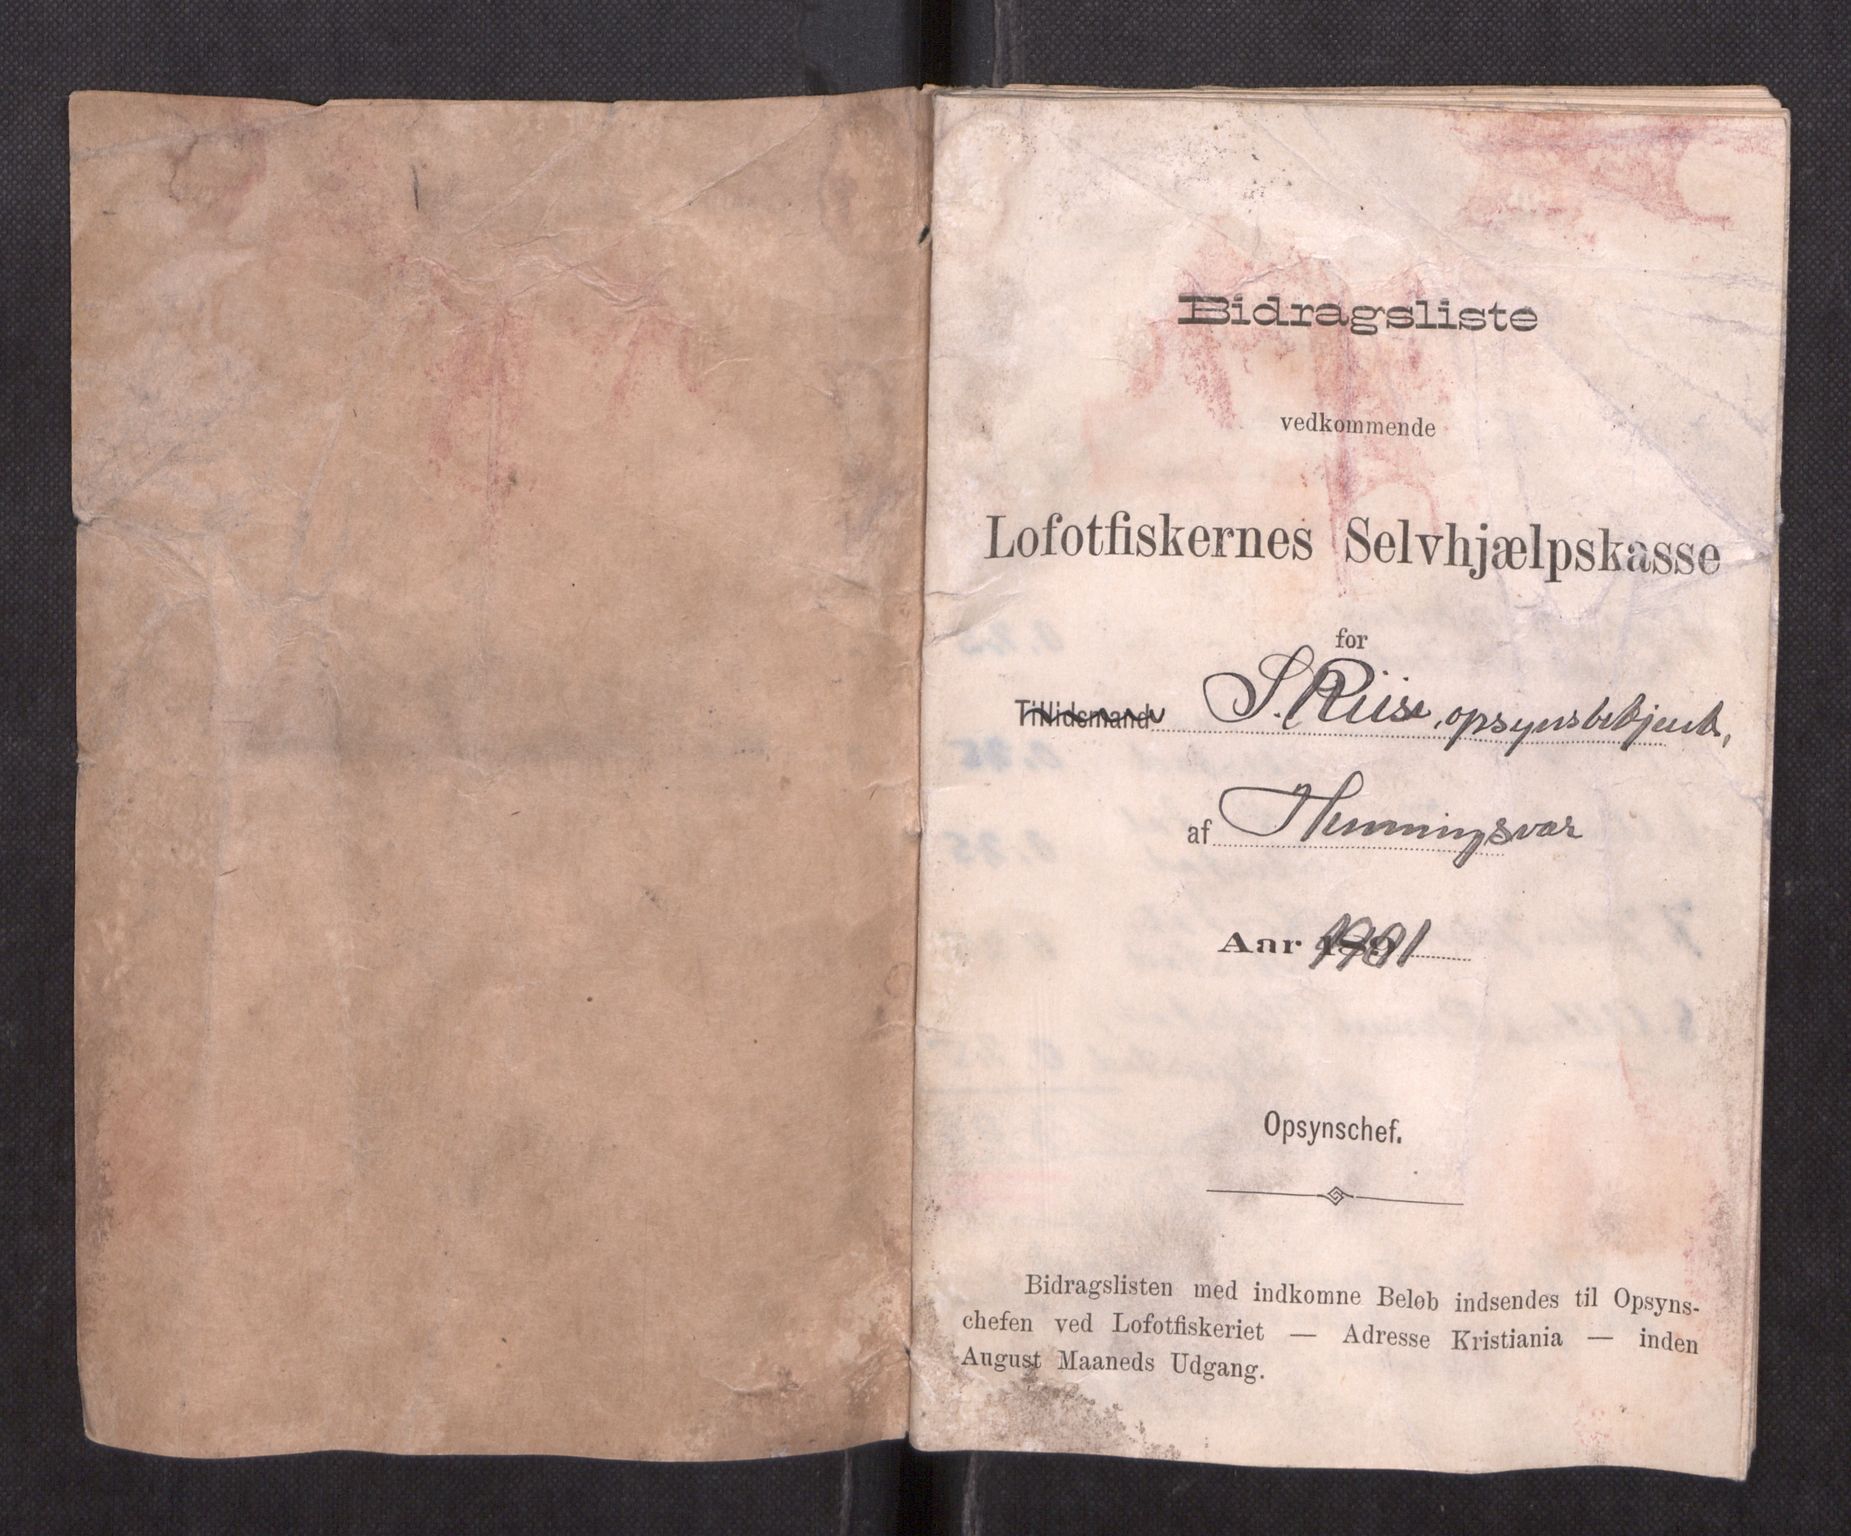 Bidragsliste
vedkommende
Lofotfiskernes Selvhjælpskasse
for
Tillidsmand S. Riise, opsynsbetjent,
af Henningsvær
Aar 1901
Opsynschef.
Bidragslisten med indkomne Beløb indsendes til Opsyns-
chefen ved Lofotfiskeriet — Adresse Kristiania — inden
August Maaneds Udgang.